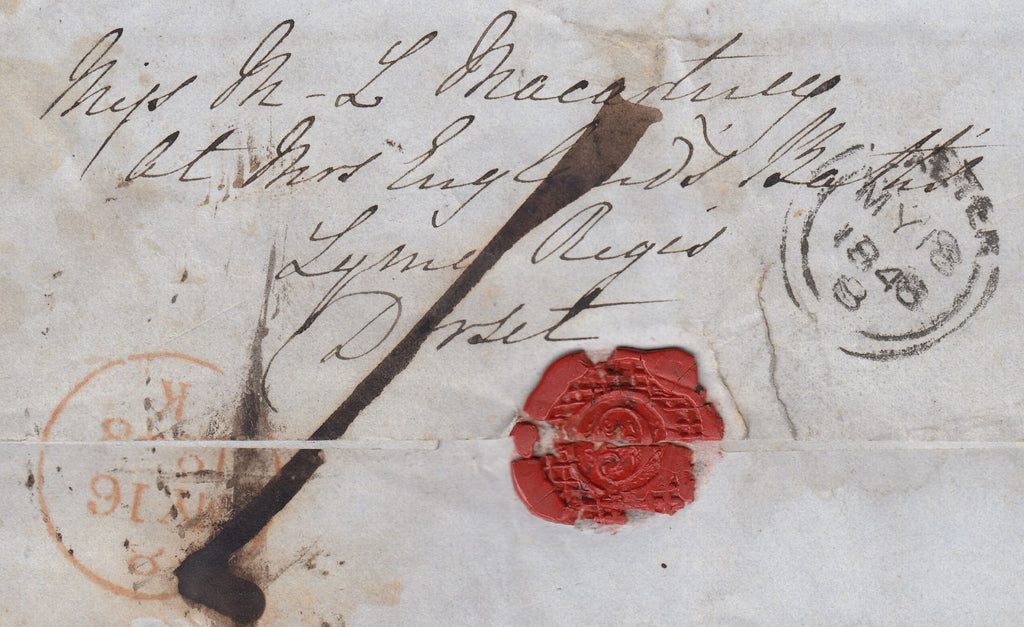 Miss M-L Macartney
At Mrs England's
Lyme Regis
Dorset
MY 18
1848
K
MY 16
8